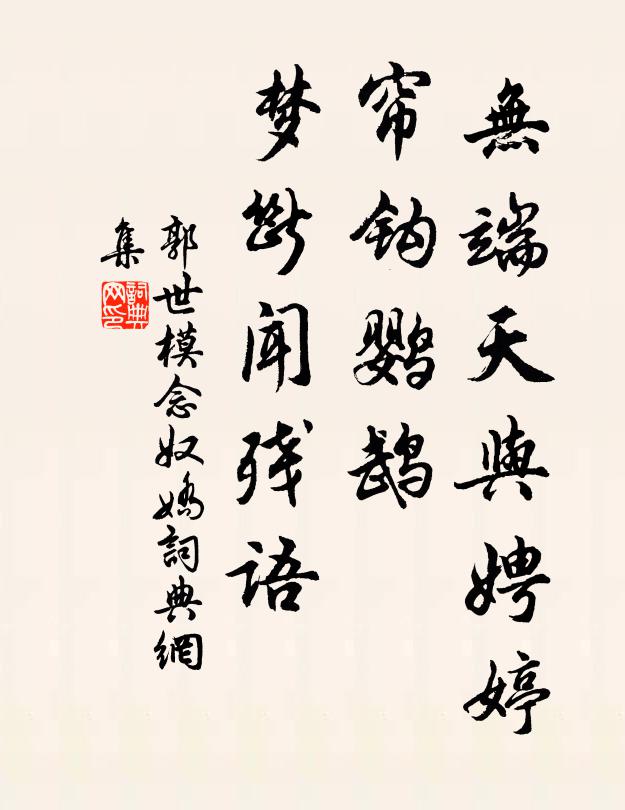 無端天與娉婷
帘钩鹦鹉
梦断闻残语
郭世模念奴嬌詞典網
集
詞典
网印